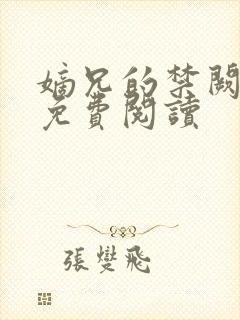 嫡兄的禁闕
免費閱讀
張燮飛